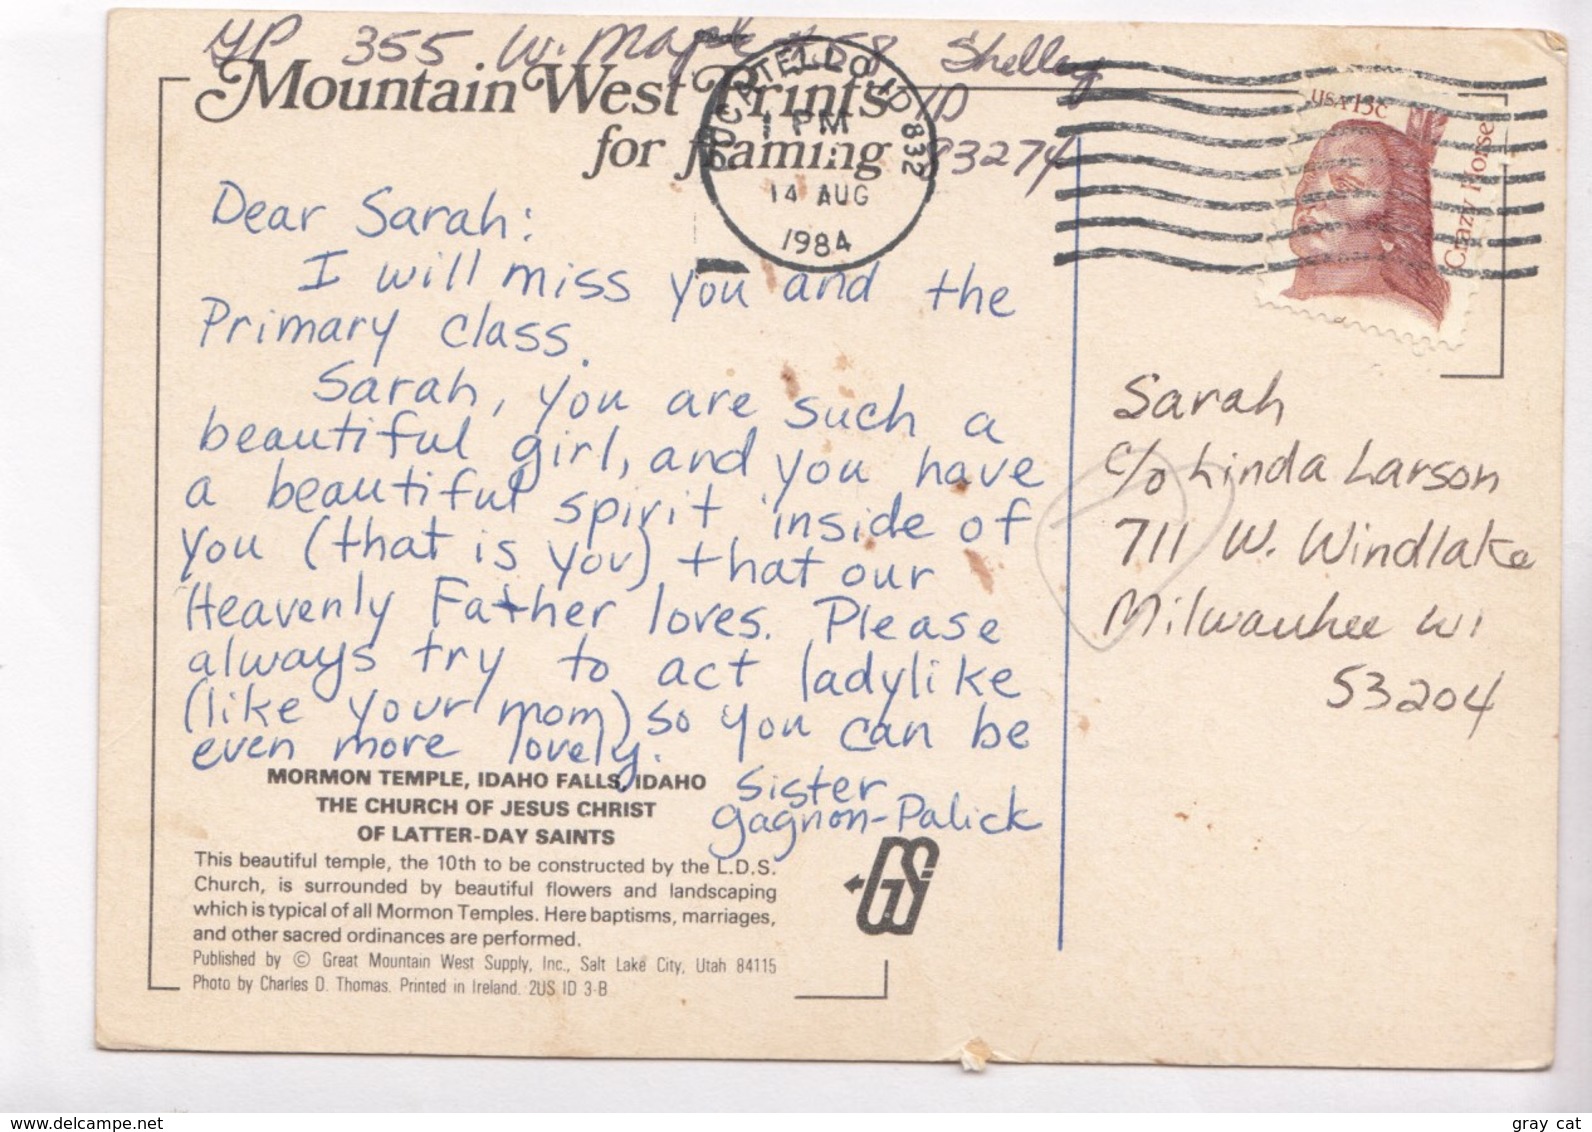 GP 355 W. Maple #58 Shelley
ID
83274
Mountain West Prints
for framing
POCATELLO ID 832
1 PM
14 AUG
1984
USA 13c
Crazy Horse
Dear Sarah:
I will miss you and the
Primary class.
Sarah, you are such a
beautiful girl, and you have
a beautiful spirit inside of
you (that is you) that our
Heavenly Father loves. Please
always try to act ladylike
(like your mom) so you can be
even more lovely.
Sister
Gagnon-Palick
Sarah
c/o Linda Larson
711 W. Windlake
Milwaukee WI
53204
MORMON TEMPLE, IDAHO FALLS, IDAHO
THE CHURCH OF JESUS CHRIST
OF LATTER-DAY SAINTS
This beautiful temple, the 10th to be constructed by the L.D.S.
Church, is surrounded by beautiful flowers and landscaping
which is typical of all Mormon Temples. Here baptisms, marriages,
and other sacred ordinances are performed.
Published by © Great Mountain West Supply, Inc., Salt Lake City, Utah 84115
Photo by Charles D. Thomas. Printed in Ireland. 2US ID 3-B
gray cat